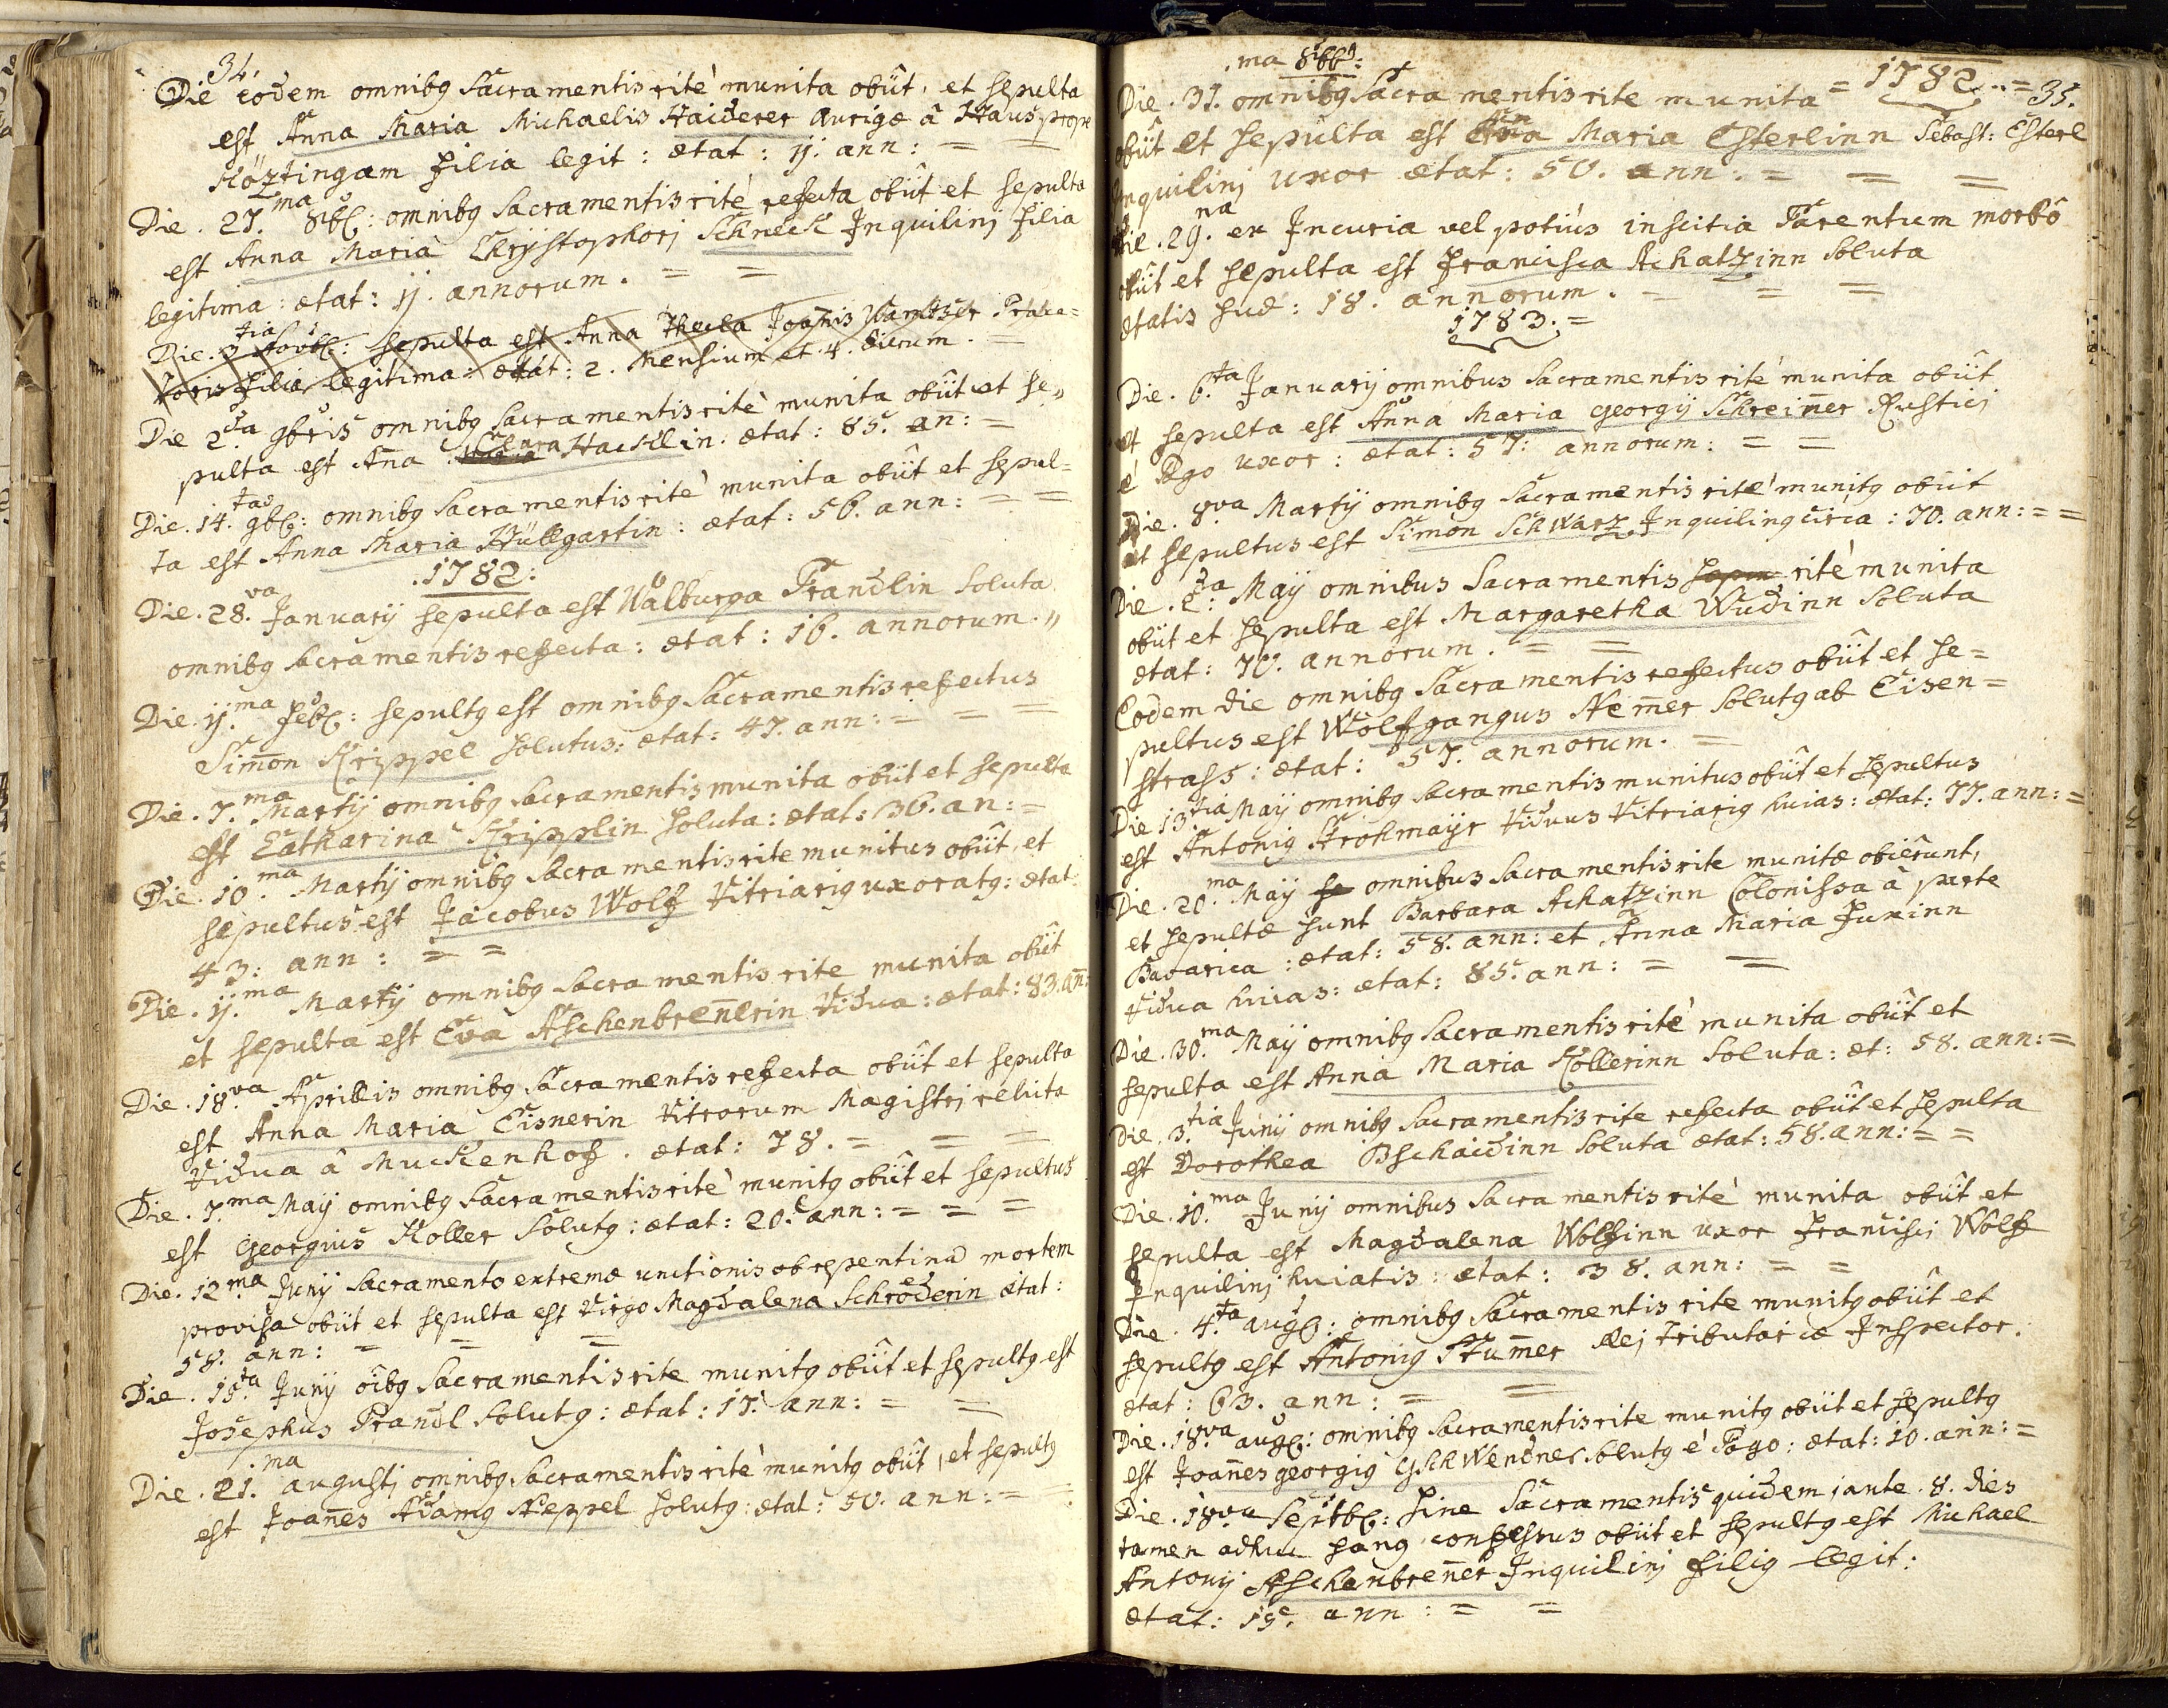 34.
Die eodem omnibg Sacramentis rité munita obiit, et sepulta
est Anna Maria Michaelis Haiderer aurigæ â Haus prope
Köztingam filia legit: ætat: 11. ann: = =
Die. 27.ma 8bɭ: omnibg Sacramentis rité refecta obiit et sepulta
est Anna Maria Chrÿstophorj Schneck Inquilinj filia
legitima: ætat: 11. annorum. = =
Die. 3tia Novbɭ: sepulta est Anna Thecla Joañis
toris filia legitima: ætat: 2. Mensium et. 4. dierum. =
Die 2da 9bris omnibg Sacramentis rité munita obiit et se„
pulta est Aña Hacklin. ætat: 85. an: =
Die. 14.ta 9bɭ: omnibg Sacramentis rité munita obiit et sepul=
ta est Anna Maria Hüllgartin: ætat: 56. ann: = =
.1782:
Die. 28.va Januarij sepulta est Walburga Prandlin soluta
omnibg sacramentis refecta: ætat: 16. annorum. „
Die. 11.ma Febɭ: sepultg est omnibg Sacramentis refectus
Sim̄on Krippel solutus: ætat: 47. ann: = = =
Die. 7.ma Martij omnibg Sacramentis munita obiit et sepulta
est Catharina Kripplin soluta: ætat: 36. an: =
Die. 10.ma Martij omnibg Sacramentis rite munitus obiit, et
sepultus est Jacobus Wolf Vitriarig uxoratg: ætat.
43: ann: = =
Die. 11.ma Martij omnibg Sacramentis rite munita obiit
et sepulta est Eva Aschenbreñerin Vidua: ætat: 83. an̄:
Die. 18.va Aprillis omnibg Sacramentis refecta obiit et sepulta
est Anna Maria Eisnerin Vitrorum Magistrj relicta
Vidua â Muckenhof. ætat: 78. = = =
Die. 7.ma Maij omnibg Sacramentis rité munitg obiit et sepultus
est Georgius Koller Solutg: ætat: 20. ann: = = =
Die. 12.ma Junij Sacramento extremæ unctionis ob repentinâ mortem
provisa obiit et sepulta est Virgo Magdalena Schröderin ætat:
58. ann: = = =
Die. 15.ta Junij oibg Sacramentis rite munitg obiit et sepultg est
Josephus Prandl Solutg: ætat: 17. ann: = =
Die. 21.ma augustj omnibg Sacramentis rité munitg obiit, et sepultg
est Joañes Adamg Neppel solutg: ætat: 50. ann: = =
= 1782. = 35.
Die. 31.ma 8bɭ: omnibg Sacramentis rite munita
obiit et sepulta est Maria Esterlinn Sebast: Esterl
Inquilinj uxor ætat: 50. ann. = = =
Die. 29.na ex Incuria vel potiús inscitia Parentum morbô
obiit et sepulta est Francisca Achatzinn Soluta
ætatis suæ: 18. annorum. = = =
1783. =
Die. 6.ta Januarij omnibus Sacramentis rité munita obiit
et sepulta est Anna Maria Georgij Schreiñer Rusticj
é Pgo uxor: ætat: 57: annorum: = =
Die. 8.va Martij omnibg Sacramentis rité munitg obiit
et sepultus est Simon Schwarz Inquiling circa: 70. ann: = =
Die. 2.da Maij omnibus Sacramentis sepu rité munita
obiit et sepulta est Margaretha Wudinn Soluta
ætat: 70. annorum. = =
Eodem die omnibg Sacramentis refectus obiit et se=
pultus est Wolfgangus Nem̄er Solutg ab Eisen=
strass: ætat: 57. annorum. =
Die 13.tia Maij omnibg Sacramentis munitus obiit et sepultus
est Antonig Strohmaijr Viduus Vitriarig huias: ætat: 77. ann: =
Die. 20.ma Maij se omnibus Sacramentis rite munitæ obierunt,
et sepultæ sunt Barbara Achatzinn Colonissa â parte
Bavarica: ætat: 58. ann: et Anna Maria Fuxinn
Vidua huias: ætat: 85. ann: = =
Die. 30.ma Maij omnibg Sacramentis rité munita obiit et
sepulta est Anna Maria Kollerinn Soluta: æt: 58. ann: =
Die. 3.tia Junij omnibg Sacramentis rite refecta obiit et sepulta
est Dorothea Bschaidinn Soluta ætat: 58. ann: = =
Die. 10.ma Junij omnibus Sacramentis rité munita obiit et
sepulta est Magdalena Wolfinn uxor Franciscj Wolf
Inquilinj huiatis: ætat: 38. ann: = =
Die. 4.ta augɭ: omnibg Sacramentis rite munitg obiit et
sepultg est Antonig Stum̄er Rej tributariæ Inspector.
ætat: 63. ann: = =
Die. 18.va augɭ: omnibg Sacramentis rite munitg obiit et sepultg
est Joañes georgig Gschwendner solutg é Pago: ætat: 10. ann: =
Die. 18.va Septbɭ: sine Sacramentis quidem, ante. 8. dies
tamen adhuc sang confessus obiit et sepultg est Michael
Antonij Aschenbreñer Inquilinj filig legit:
ætat: 15. ann: = =